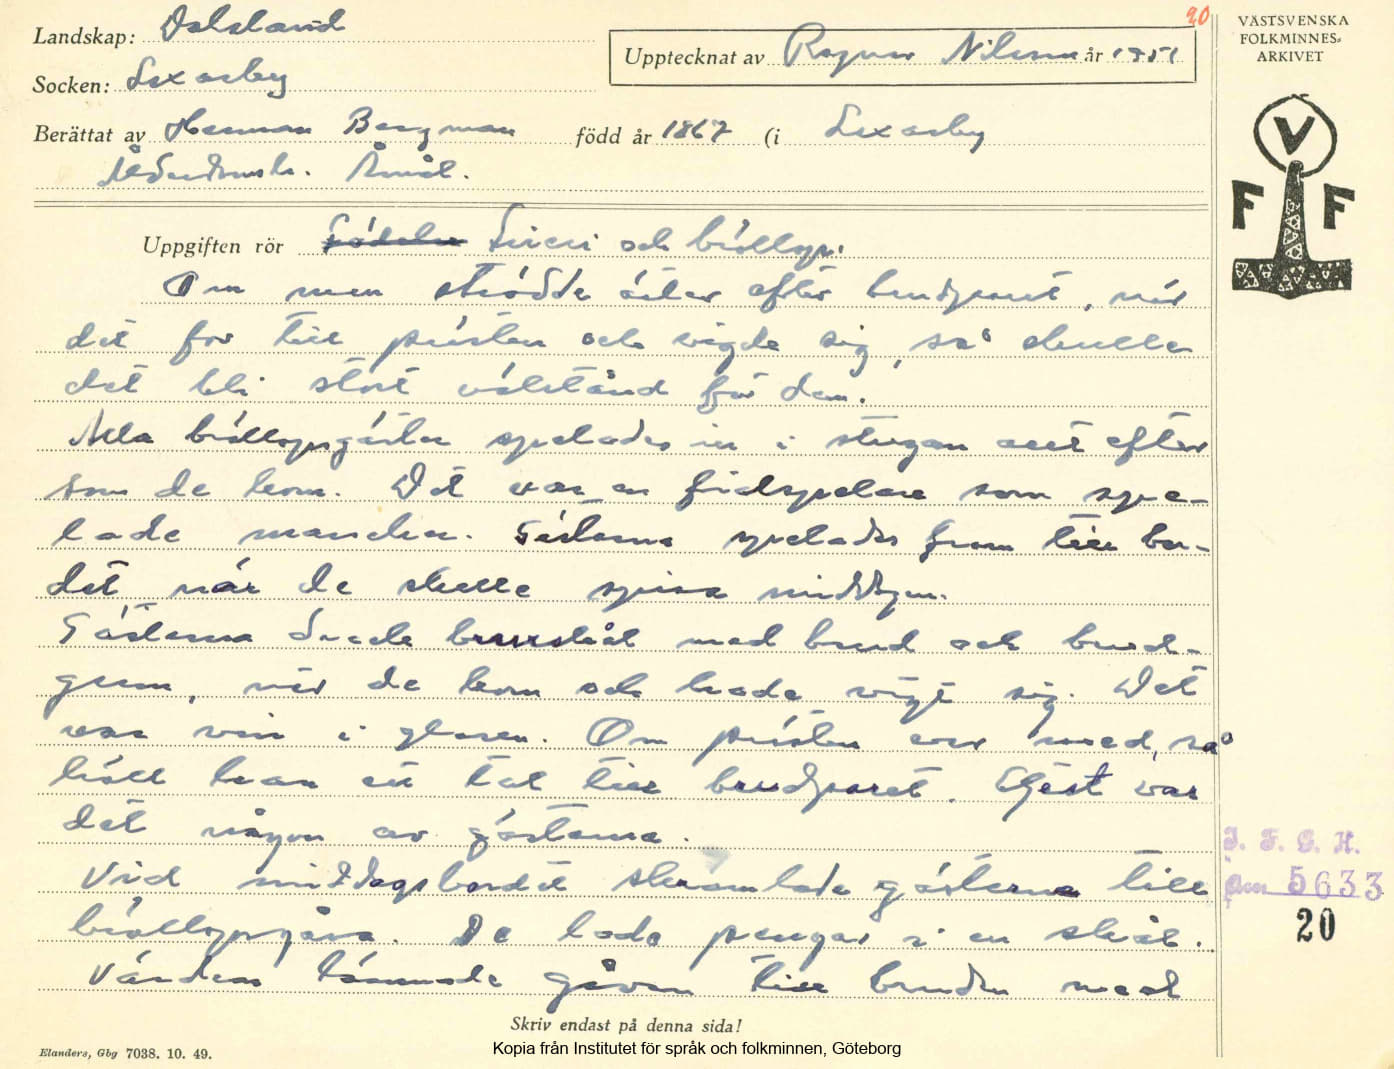 20
VÄSTSVENSKA
FOLKMINNES-
ARKIVET
Landskap: Dalsland
Upptecknat av Ragnar Nilsson år 1951
Socken: Laxarby
Berättat av Herman Bergman född år 1867 (i Laxarby
Ålderdomsh. Åmål.
V
F F
Uppgiften rör Frieri och bröllop.
Om man strödde ärter efter brudparet, när
det for till prästen och vigde sig, så skulle
det bli stort välstånd för dem.
Alla bröllopsgäster spelades in i stugan allt efter
som de kom. Det var en fiolspelare som spe-
lade marscher. Gästerna spelades fram till bor-
det när de skulle spisa middagen.
Gästerna drack brurskål med brud och brud-
gum, när de kom och hade vigt sig. Det
var vin i glasen. Om prästen var med, så
höll han ett tal till brudparet. Eljest var
det någon av gästerna.
Vid middagsbordet skramlade gästerna till
bröllopsgåva. De lade pengar i en skål.
Värden lämnade gåvan till bruden med
J. F. G. H.
5633
20
Skriv endast på denna sida!
Elanders, Gbg 7038. 10. 49.
Kopia från Institutet för språk och folkminnen, Göteborg